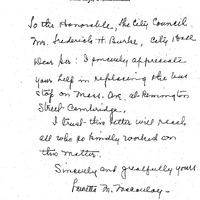 To the Honorable, The City Council
Mr. Frederick H. Burke, City Hall
Dear Sir: I sincerely appreciate
your help in replacing the bus
stop on Mass. Ave. at Remington
Street Cambridge.
I trust this letter will reach
all who so kindly worked on
this matter.
Sincerely and gratefully yours
M. Macaulay